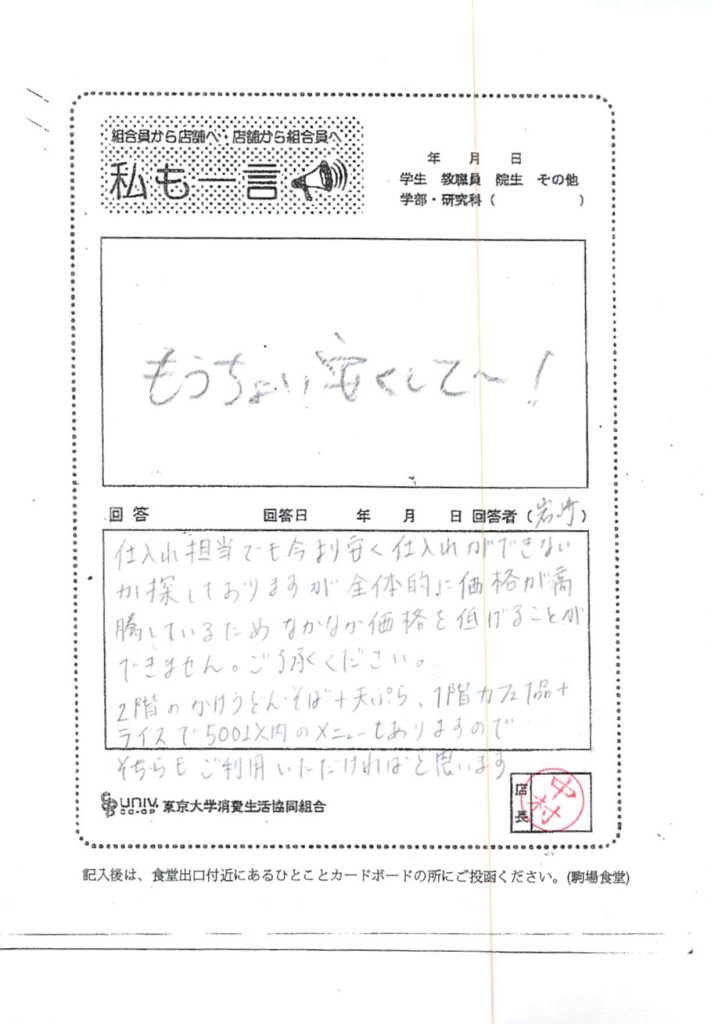 組合員から店舗へ・店舗から組合員へ
私も一言
年 月 日
学生 教職員 院生 その他
学部・研究科( )
もうちょい安くして〜!
回答 回答日 年 月 日 回答者(岩崎)
仕入れ担当でも今より安く仕入れができない
か探しておりますが全体的に価格が高
騰しているためなかなか価格を低げることが
できません。ご了承ください。
2階のかけうどん・そば+天ぷら、1階カフェ1品+
ライスで500以内のメニューもありますので
そちらもご利用いただければと思います
UNIV. CO-OP 東京大学消費生活協同組合
店長 中村
記入後は、食堂出口付近にあるひとことカードボードの所にご投函ください。(駒場食堂)